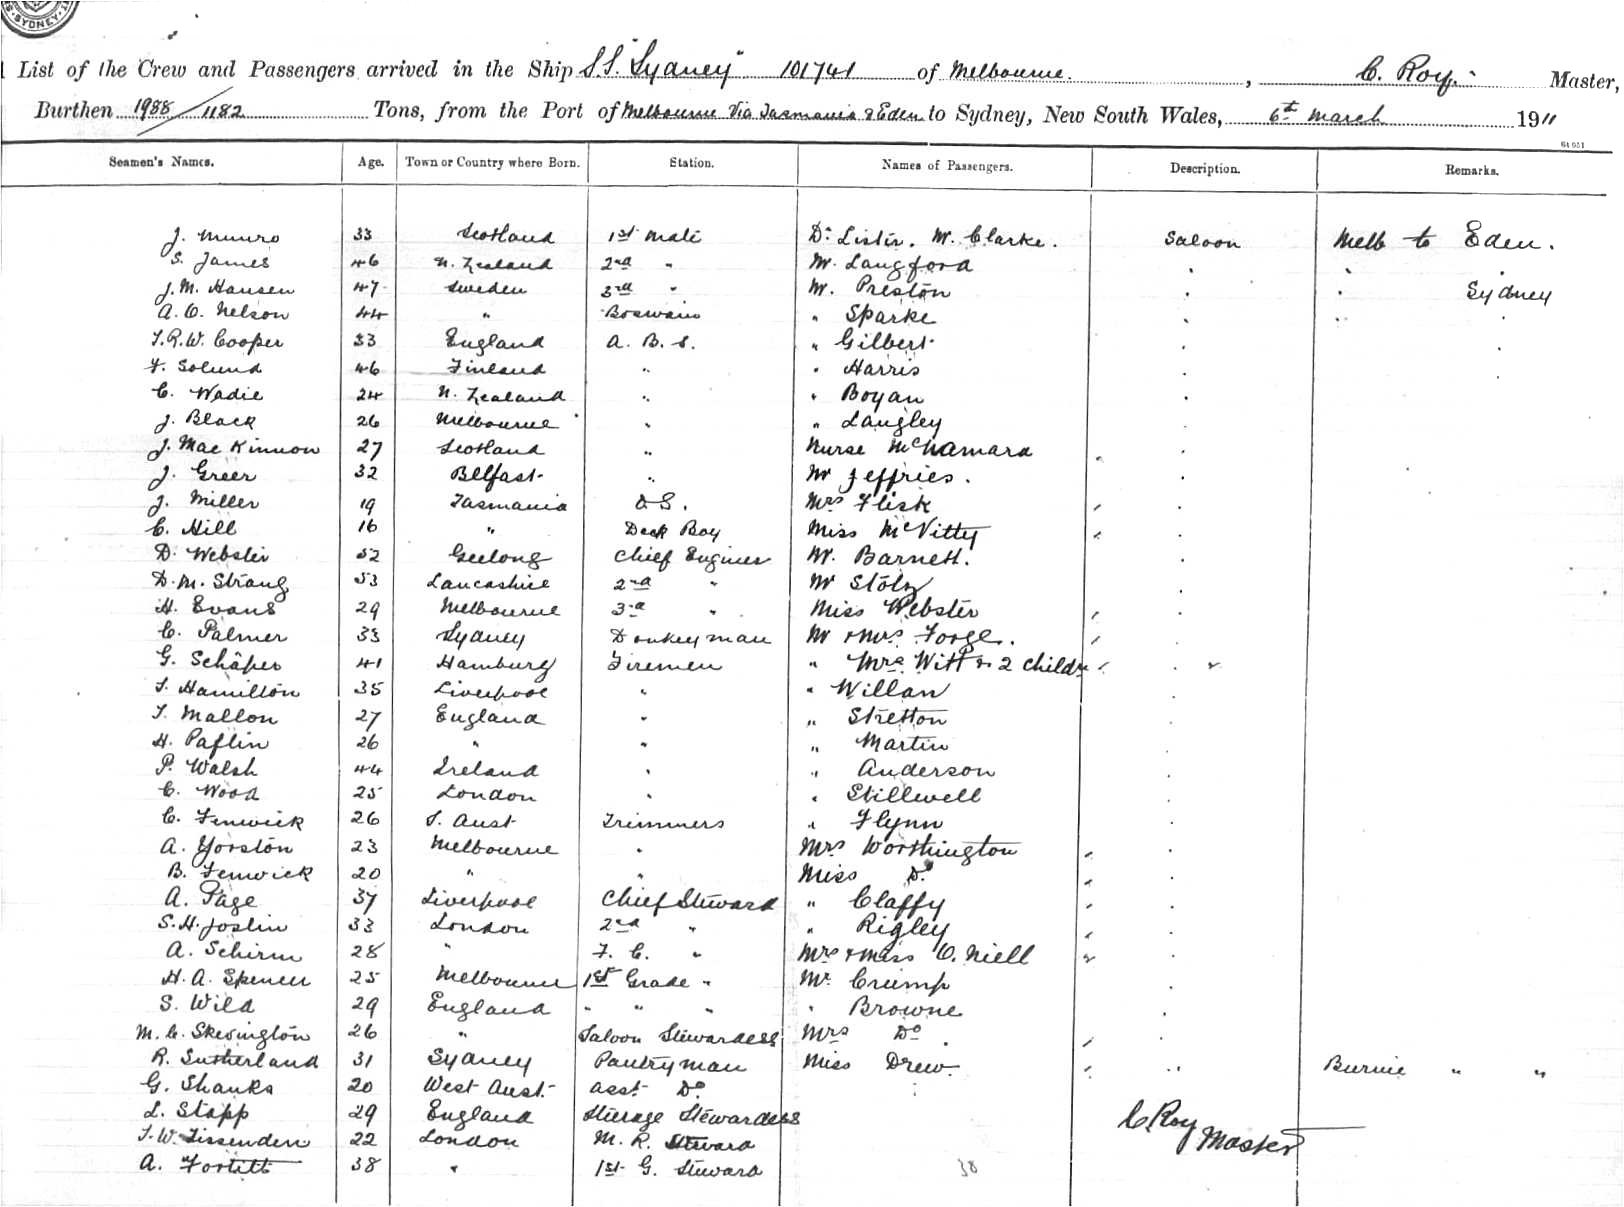 SYDNEY
List of the Crew and Passengers arrived in the Ship S.S. "Sydney" 101741 of Melbourne. , C. Roy. Master,
Burthen 1988/1182 Tons, from the Port of Melbourne Via Tasmania & Eden to Sydney, New South Wales, 6th March 1911
Seamen's Names. Age. Town or Country where Born. Station. Names of Passengers. Description. Remarks.
J. Munro 33 Scotland 1st Mate Dr Lister. Mr. Clarke. Saloon Melb to Eden.
S. James 46 N. Zealand 2nd " Mr. Langford "
J. M. Hansen 47 Sweden 3rd " Mr. Preston " " Sydney
A. O. Nelson 44 " Boswain " Sparke " " "
T.R.W. Cooper 33 England A. B. S. " Gilbert " "
F. Solund 46 Finland " " Harris " "
C. Wadie 24 N. Zealand " " Boyan "
J. Black 26 Melbourne " " Langley "
J. MacKinnon 27 Scotland " Nurse McNamara "
J. Greer 32 Belfast " Mr Jeffries. "
J. Miller 19 Tasmania O S. Mrs Flisk "
C. Hill 16 " Deck Boy Miss McVitty "
D. Webster 52 Geelong Chief Engineer Mr. Barnett. "
D. M. Strang 53 Lancashire 2nd " Mr Stolz "
H. Evans 29 Melbourne 3rd " Miss Webster "
C. Palmer 33 Sydney Donkeyman Mr & Mrs Forge. "
G. Schäper 41 Hamburg Firemen " Mrs Witt & 2 Childn "
T. Hamilton 35 Liverpool " " Willan "
T. Mallon 27 England " " Stretton "
H. Paflin 26 " " " Martin "
P. Walsh 44 Ireland " " Anderson "
C. Wood 25 London " " Stillwell "
C. Fenwick 26 S. Aust Trimmers " Flynn "
A. Yorston 23 Melbourne " Mrs Worthington "
B. Fenwick 20 " " Miss Do "
A. Page 37 Liverpool Chief Steward " Claffy "
S. H. Joslin 33 London 2nd " " Rigley "
A. Schirm 28 " F. C. " Mrs & Miss O. Niell "
H. A. Spencer 25 Melbourne 1st Grade " Mr. Crump "
S. Wild 29 England " " " " Browne "
M. C. Skevington 26 " Saloon Stewardess Mrs Do "
R. Sutherland 31 Sydney Pantryman Miss Drew. " Burnie " "
G. Shanks 20 West Aust. Asst Do
L. Stapp 29 England Steerage Stewardess C Roy
T. W. Tissenden 22 London M. R. Steward Master
A. 38 " 1st G. Steward 38